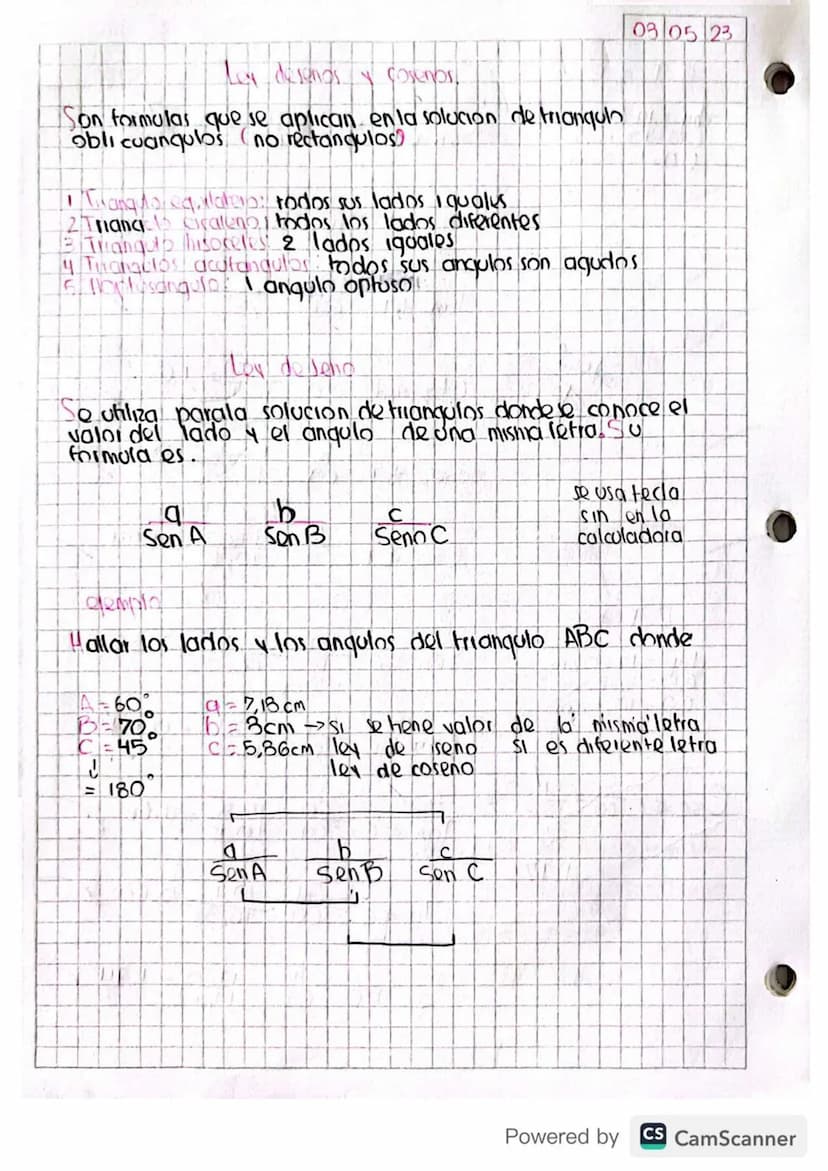 09 05 23
Ley de senos y cosenos.
Son formulas que se aplican en la solucion de triangulo
oblicuangulos (no rectangulos)
1 Triangulo equilatero: todos sus lados iguales
2 Triangulo escaleno: todos los lados diferentes
3 Triangulo hisoceles: 2 lados iguales
4 Triangulos acutangulos: todos sus angulos son agudos
5. 1 angulo optuso
Ley de seno
Se utiliza para la solucion de triangulos donde se conoce el
valor del lado y el angulo de una misma letra. Su
formula es.
a b c
Sen A Sen B Seno C
se usa tecla
sin en la
calculadora
ejemplo
Hallar los lados y los angulos del triangulo ABC donde
A = 60° a = 7,18 cm
B = 70° b = 8cm → si se tiene valor de la misma letra
C = 45° c = 5,86cm ley de seno si es diferente letra
↓ ley de coseno
= 180°
a b c
Sen A Sen B Sen C
Powered by CS CamScanner